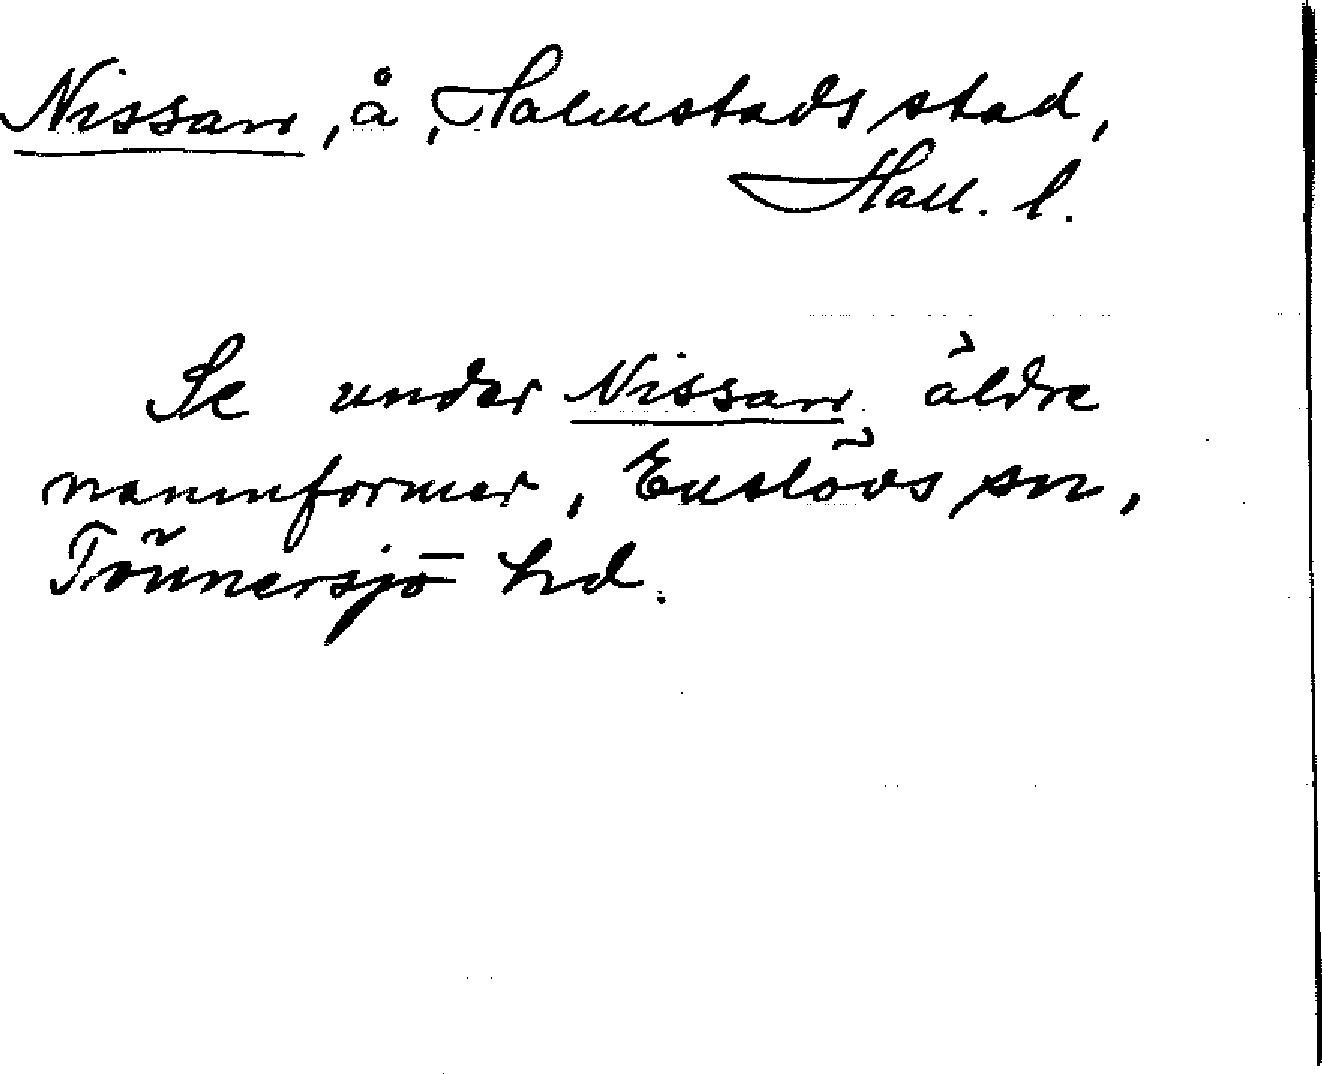 Nissan, å, Halmstads stad,
Hall. l.
Se under Nissan äldre
namnformer, Enslövs sn,
Tönnersjö hd.